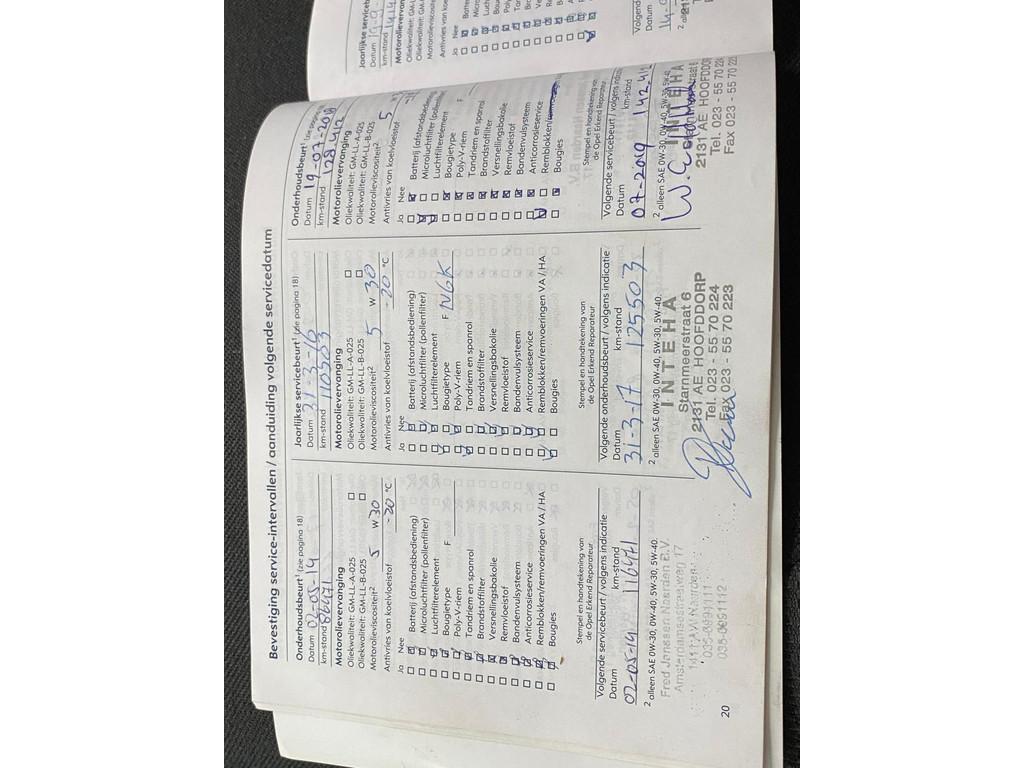 Bevestiging service-intervallen / aanduiding volgende servicedatum
Onderhoudsbeurt¹ (zie pagina 18)
Datum 02-05-14
km-stand 86471
Motorolievervanging
Oliekwaliteit: GM-LL-A-025 □
Oliekwaliteit: GM-LL-B-025 □
Motorolieviscositeit² 5 W 30
Antivries van koelvloeistof -20 °C
Ja Nee
Batterij (afstandsbediening)
Microluchtfilter (pollenfilter)
Luchtfilterelement
Bougietype F
Poly-V-riem
Tandriem en spanrol
Brandstoffilter
Versnellingsbakolie
Remvloeistof
Bandenvulsysteem
Anticorrosieservice
Remblokken/remvoeringen VA / HA
Bougies
Stempel en handtekening van
de Opel Erkend Reparateur
Volgende servicebeurt / volgens indicatie
Datum km-stand
02-05-14 116471
² alleen SAE 0W-30, 0W-40, 5W-30, 5W-40.
Fred Janssen Naarden B.V.
Amsterdamsestraatweg 17
1411 AW Naarden
035-6891111
20
Jaarlijkse servicebeurt¹ (zie pagina 18)
Datum 31-3-16
km-stand 110503
Motorolievervanging
Oliekwaliteit: GM-LL-A-025 □
Oliekwaliteit: GM-LL-B-025 □
Motorolieviscositeit² 5 W 30
Antivries van koelvloeistof -20 °C
Ja Nee
Batterij (afstandsbediening)
Microluchtfilter (pollenfilter)
Luchtfilterelement
Bougietype F NGK
Poly-V-riem
Tandriem en spanrol
Brandstoffilter
Versnellingsbakolie
Remvloeistof
Bandenvulsysteem
Anticorrosieservice
Remblokken/remvoeringen VA / HA
Bougies
Stempel en handtekening van
de Opel Erkend Reparateur
Volgende onderhoudsbeurt / volgens indicatie
Datum km-stand
31-3-17 125503
² alleen SAE 0W-30, 0W-40, 5W-30, 5W-40.
INTEHA
Starnmeerstraat 6
2131 AE HOOFDDORP
Tel. 023 - 55 70 224
Fax 023 - 55 70 223
Onderhoudsbeurt¹ (zie pagina
Datum 19-07-2018
km-stand 128.412
Motorolievervanging
Oliekwaliteit: GM-LL-A-025
Oliekwaliteit: GM-LL-B-025
Motorolieviscositeit² 5
Antivries van koelvloeistof
Ja Nee
Batterij (afstandsbediening
Microluchtfilter (pollenfilter
Luchtfilterelement
Bougietype F
Poly-V-riem
Tandriem en spanrol
Brandstoffilter
Versnellingsbakolie
Remvloeistof
Bandenvulsysteem
Anticorrosieservice
Bougies
Stempel en handtekening van
de Opel Erkend Reparateur
Volgende servicebeurt / volgens indic
Datum km-stand
07-2019 142.412
² alleen SAE 0W-30, 0W-40, 5W-30, 5W-40.
INTEHA
2131 AE HOOFDDOR
Tel. 023 - 55 70 22
Fax 023 - 55 70 22
Jaarlijkse serviceb
Datum
km-stand
Motorolievervan
Oliekwaliteit: GM-L
Oliekwaliteit: GM-L
Motorolieviscositeit
Antivries van koelv
Ja Nee
Volgend
Datum
² allee